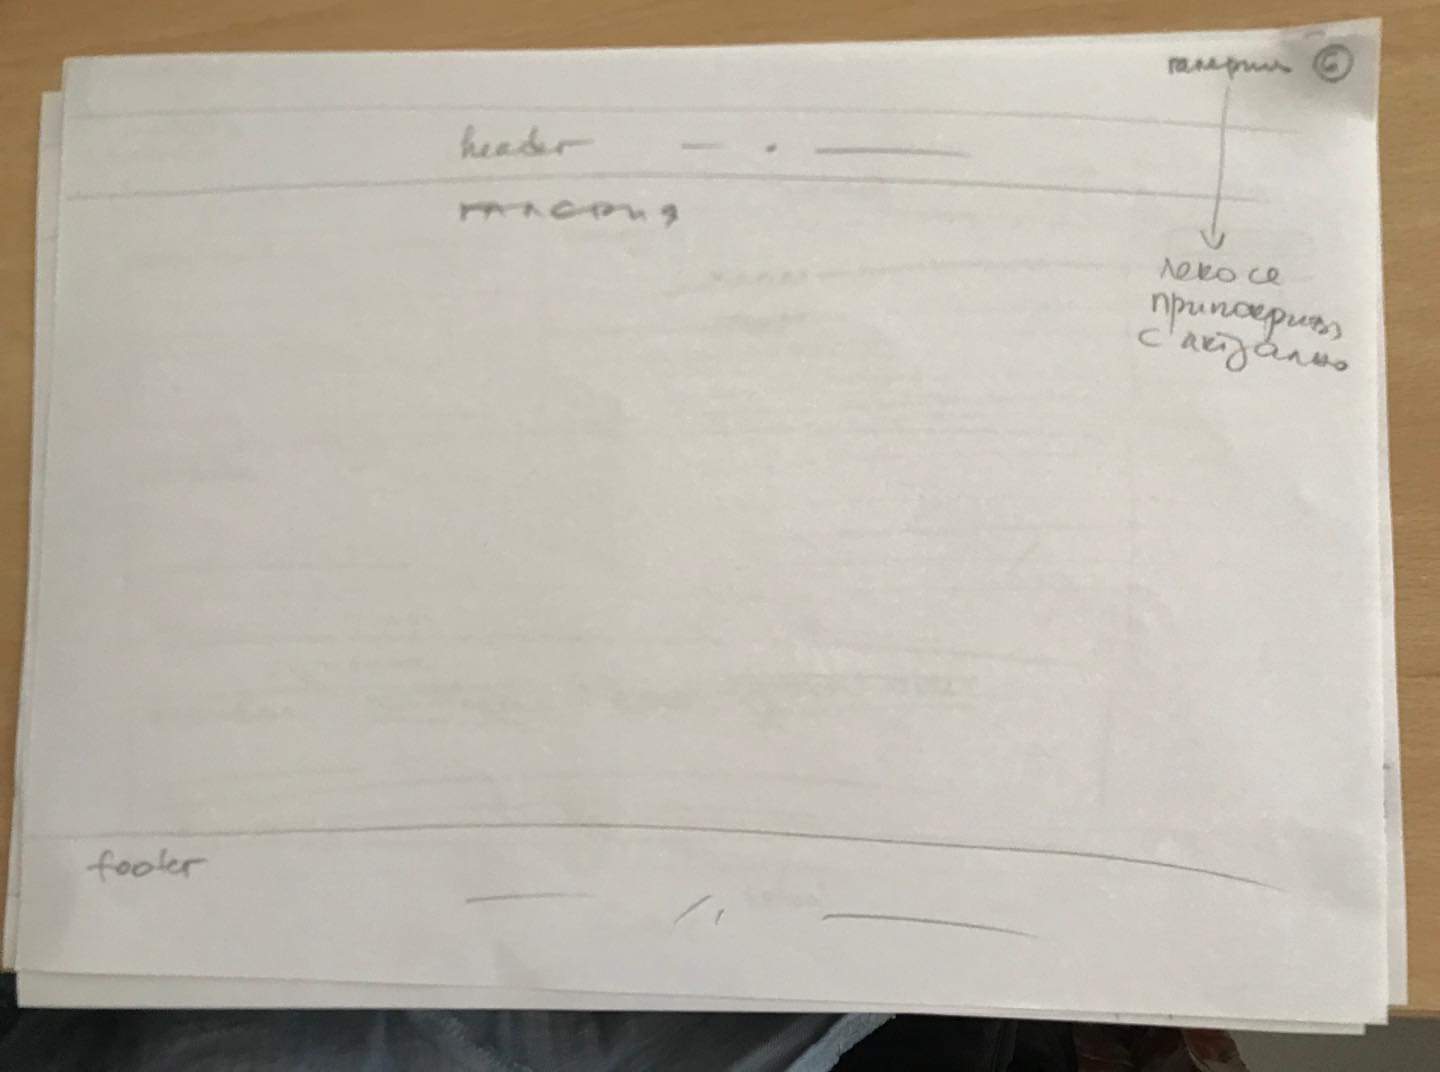 галерия 6
header
галерия
леко се
припокрива
с актуално
footer